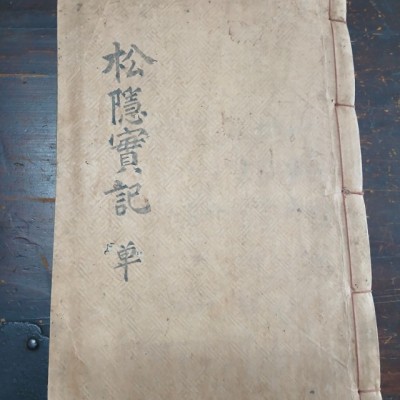 松隱實記
單